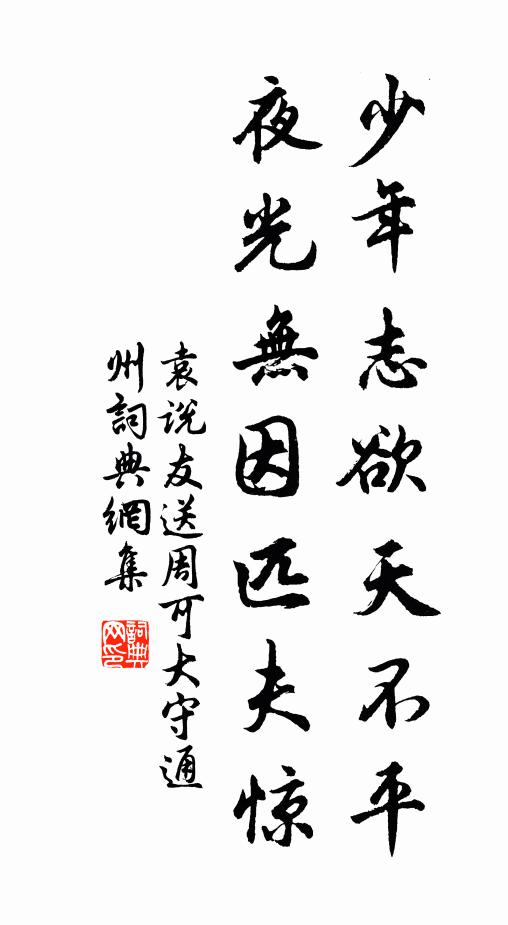 少年志欲天不平
夜光無因匹夫惊
袁说友送周可大守通
州詞典網集
詞典网印